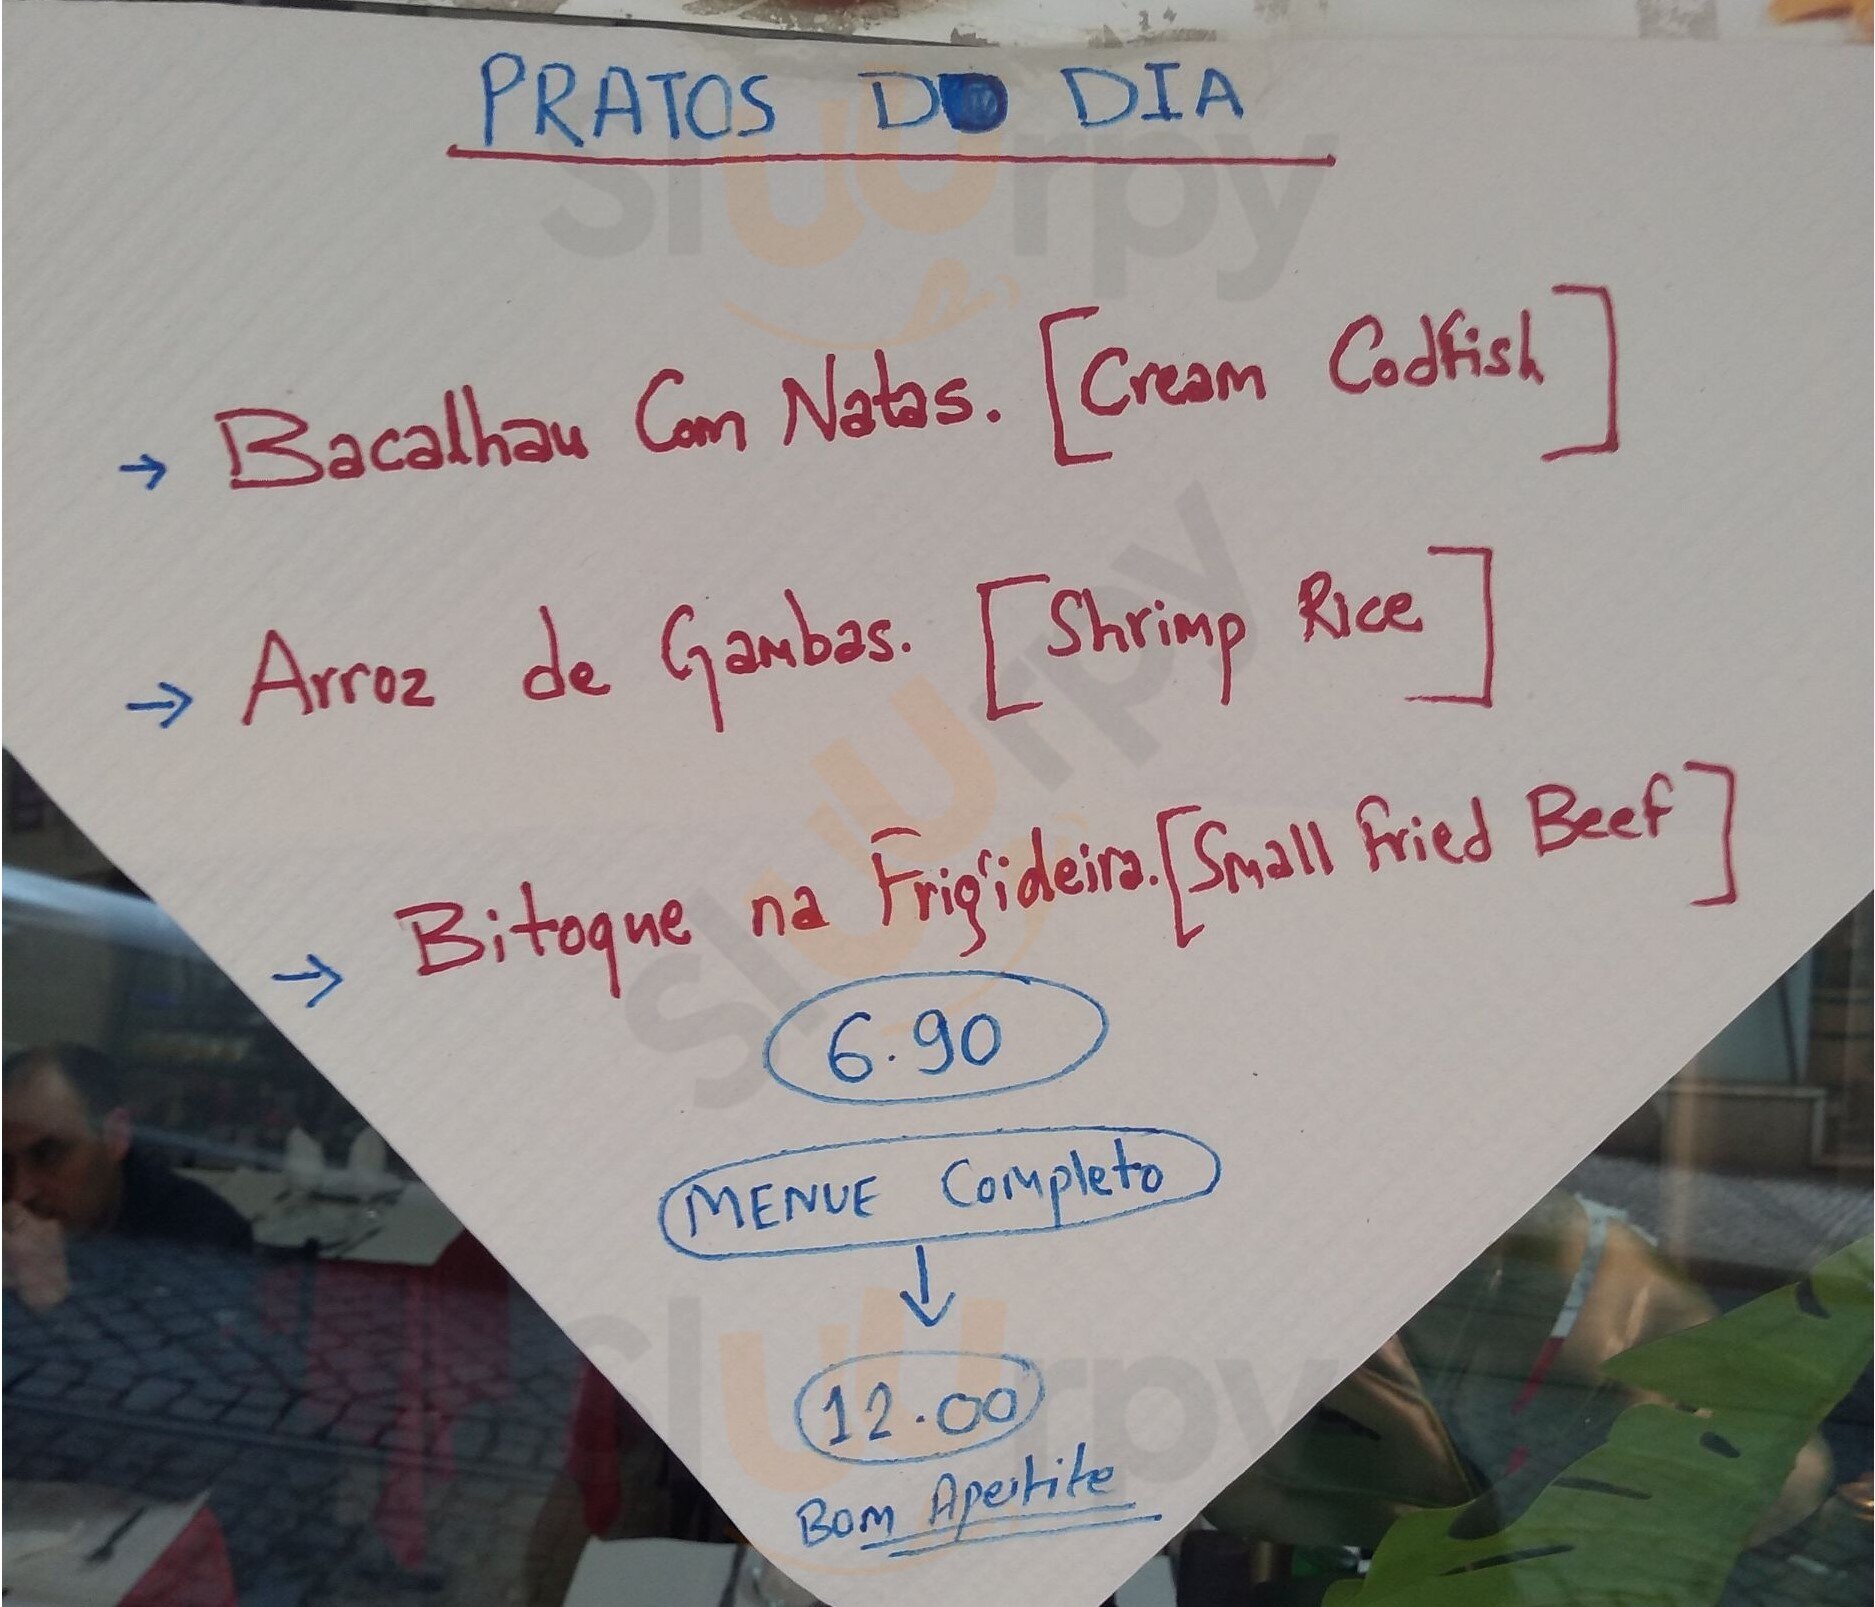 PRATOS DO DIA
→ Bacalhau Com Natas. [Cream Codfish]
→ Arroz de Gambas. [Shrimp Rice]
→ Bitoque na Frigideira. [Small Fried Beef]
6.90
MENUE Completo
↓
12.00
Bom Apertite
sluurpy
sluurpy
sluurpy